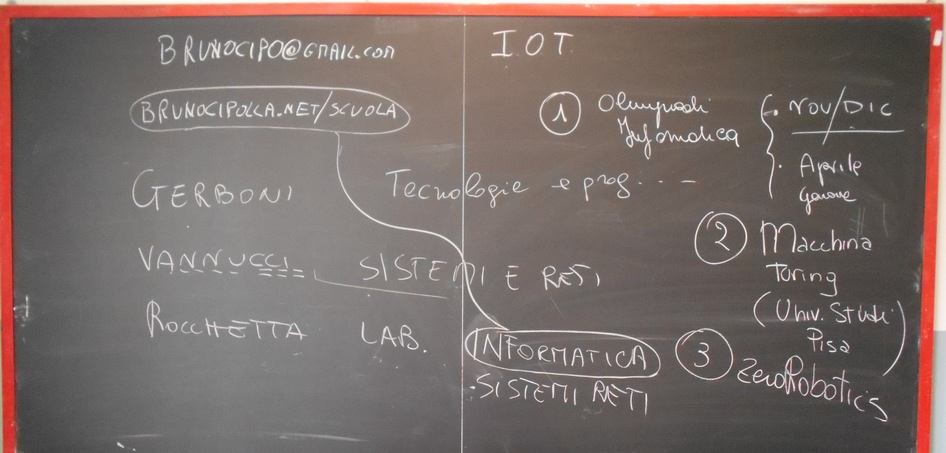 BRUNOCIPO@GMAIL.COM
BRUNOCIPOLLA.NET/SCUOLA
GERBONI Tecnologie e prog. - - -
VANNUCCI SISTEMI E RETI
ROCCHETTA LAB. INFORMATICA
SISTEMI RETI
IOT
1 Olimpiadi
Informatica
NOV/DIC
Aprile
2 Macchina
Turing
(Univ. Studi
Pisa)
3 ZeroRobotics